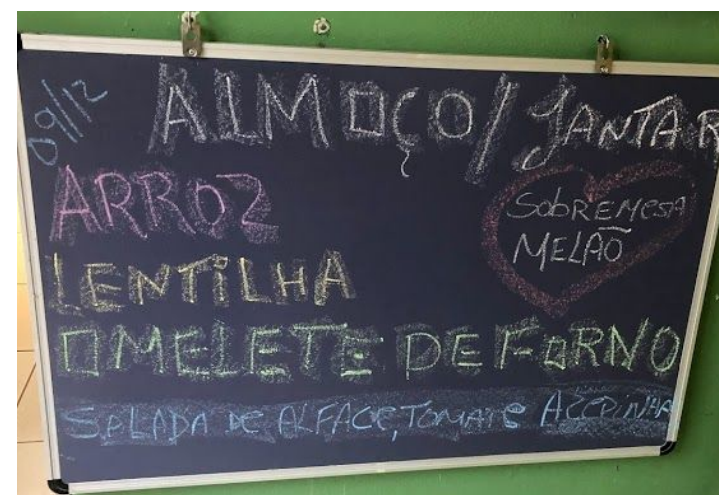 09/12
ALMOÇO/JANTAR
ARROZ
SobREMESA
MELÃO
LENTILHA
OMELETE DE FORNO
SALADA DE ALFACE, TOMATE